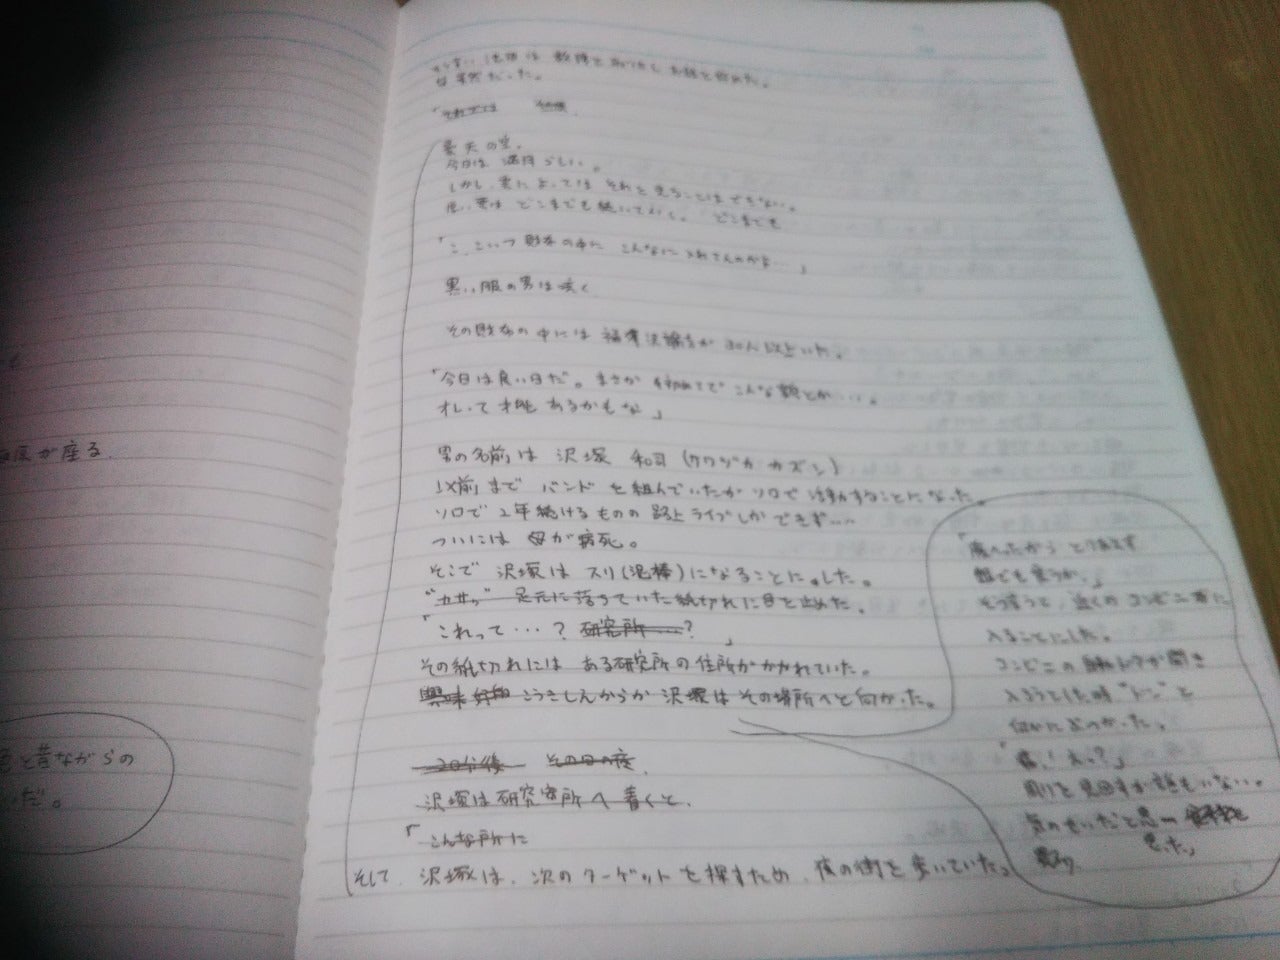 な事実だった。
「それでは その後
曇天の空。
今日は 満月らしい。
しかし、雲によっては それを見ることはできない。
黒い雲は どこまでも続いていく。 どこまでも
「こ、こいつ 財布の中に こんなに入れてんのかよ…」
黒い服の男は呟く
その財布の中には 福澤諭吉が 30人以上いた。
「今日は良い日だ。まさか 初めてで こんな額とか…。
オレって才能 あるかもな」
男の名前は 沢塚 和司 (サワヅカ カズシ)
以前まで バンドを組んでいたが ソロで活動することになった。
ソロで 2年続けるものの 路上ライブしかできず……
ついには 母が病死。
そこで 沢塚は スリ(泥棒)になることに。した。
"カサッ" 足元に落ちていた紙切れに目を止めた。
「これって…? 研究所……? 」
その紙切れには ある研究所の住所がかかれていた。
興味 こうきしんからか 沢塚は その場所へと向かった。
20分後 その日の夜
沢塚は研究所へ 着くと、
「こんな所に
そして、沢塚は、次のターゲットを探すため、夜の街を歩いていた。
「腹へったから とりあえず
飯でも食うか。」
そう言うと、近くの コンビニに
入ることにした。
コンビニの 自動ドアが開き
入ろうとした時 "ドン" と
何かにぶつかった。
「痛! えっ?」
周りを見回すが誰もいない。
気のせいだと思
思った。
が座る.
と昔ながらの
だ。